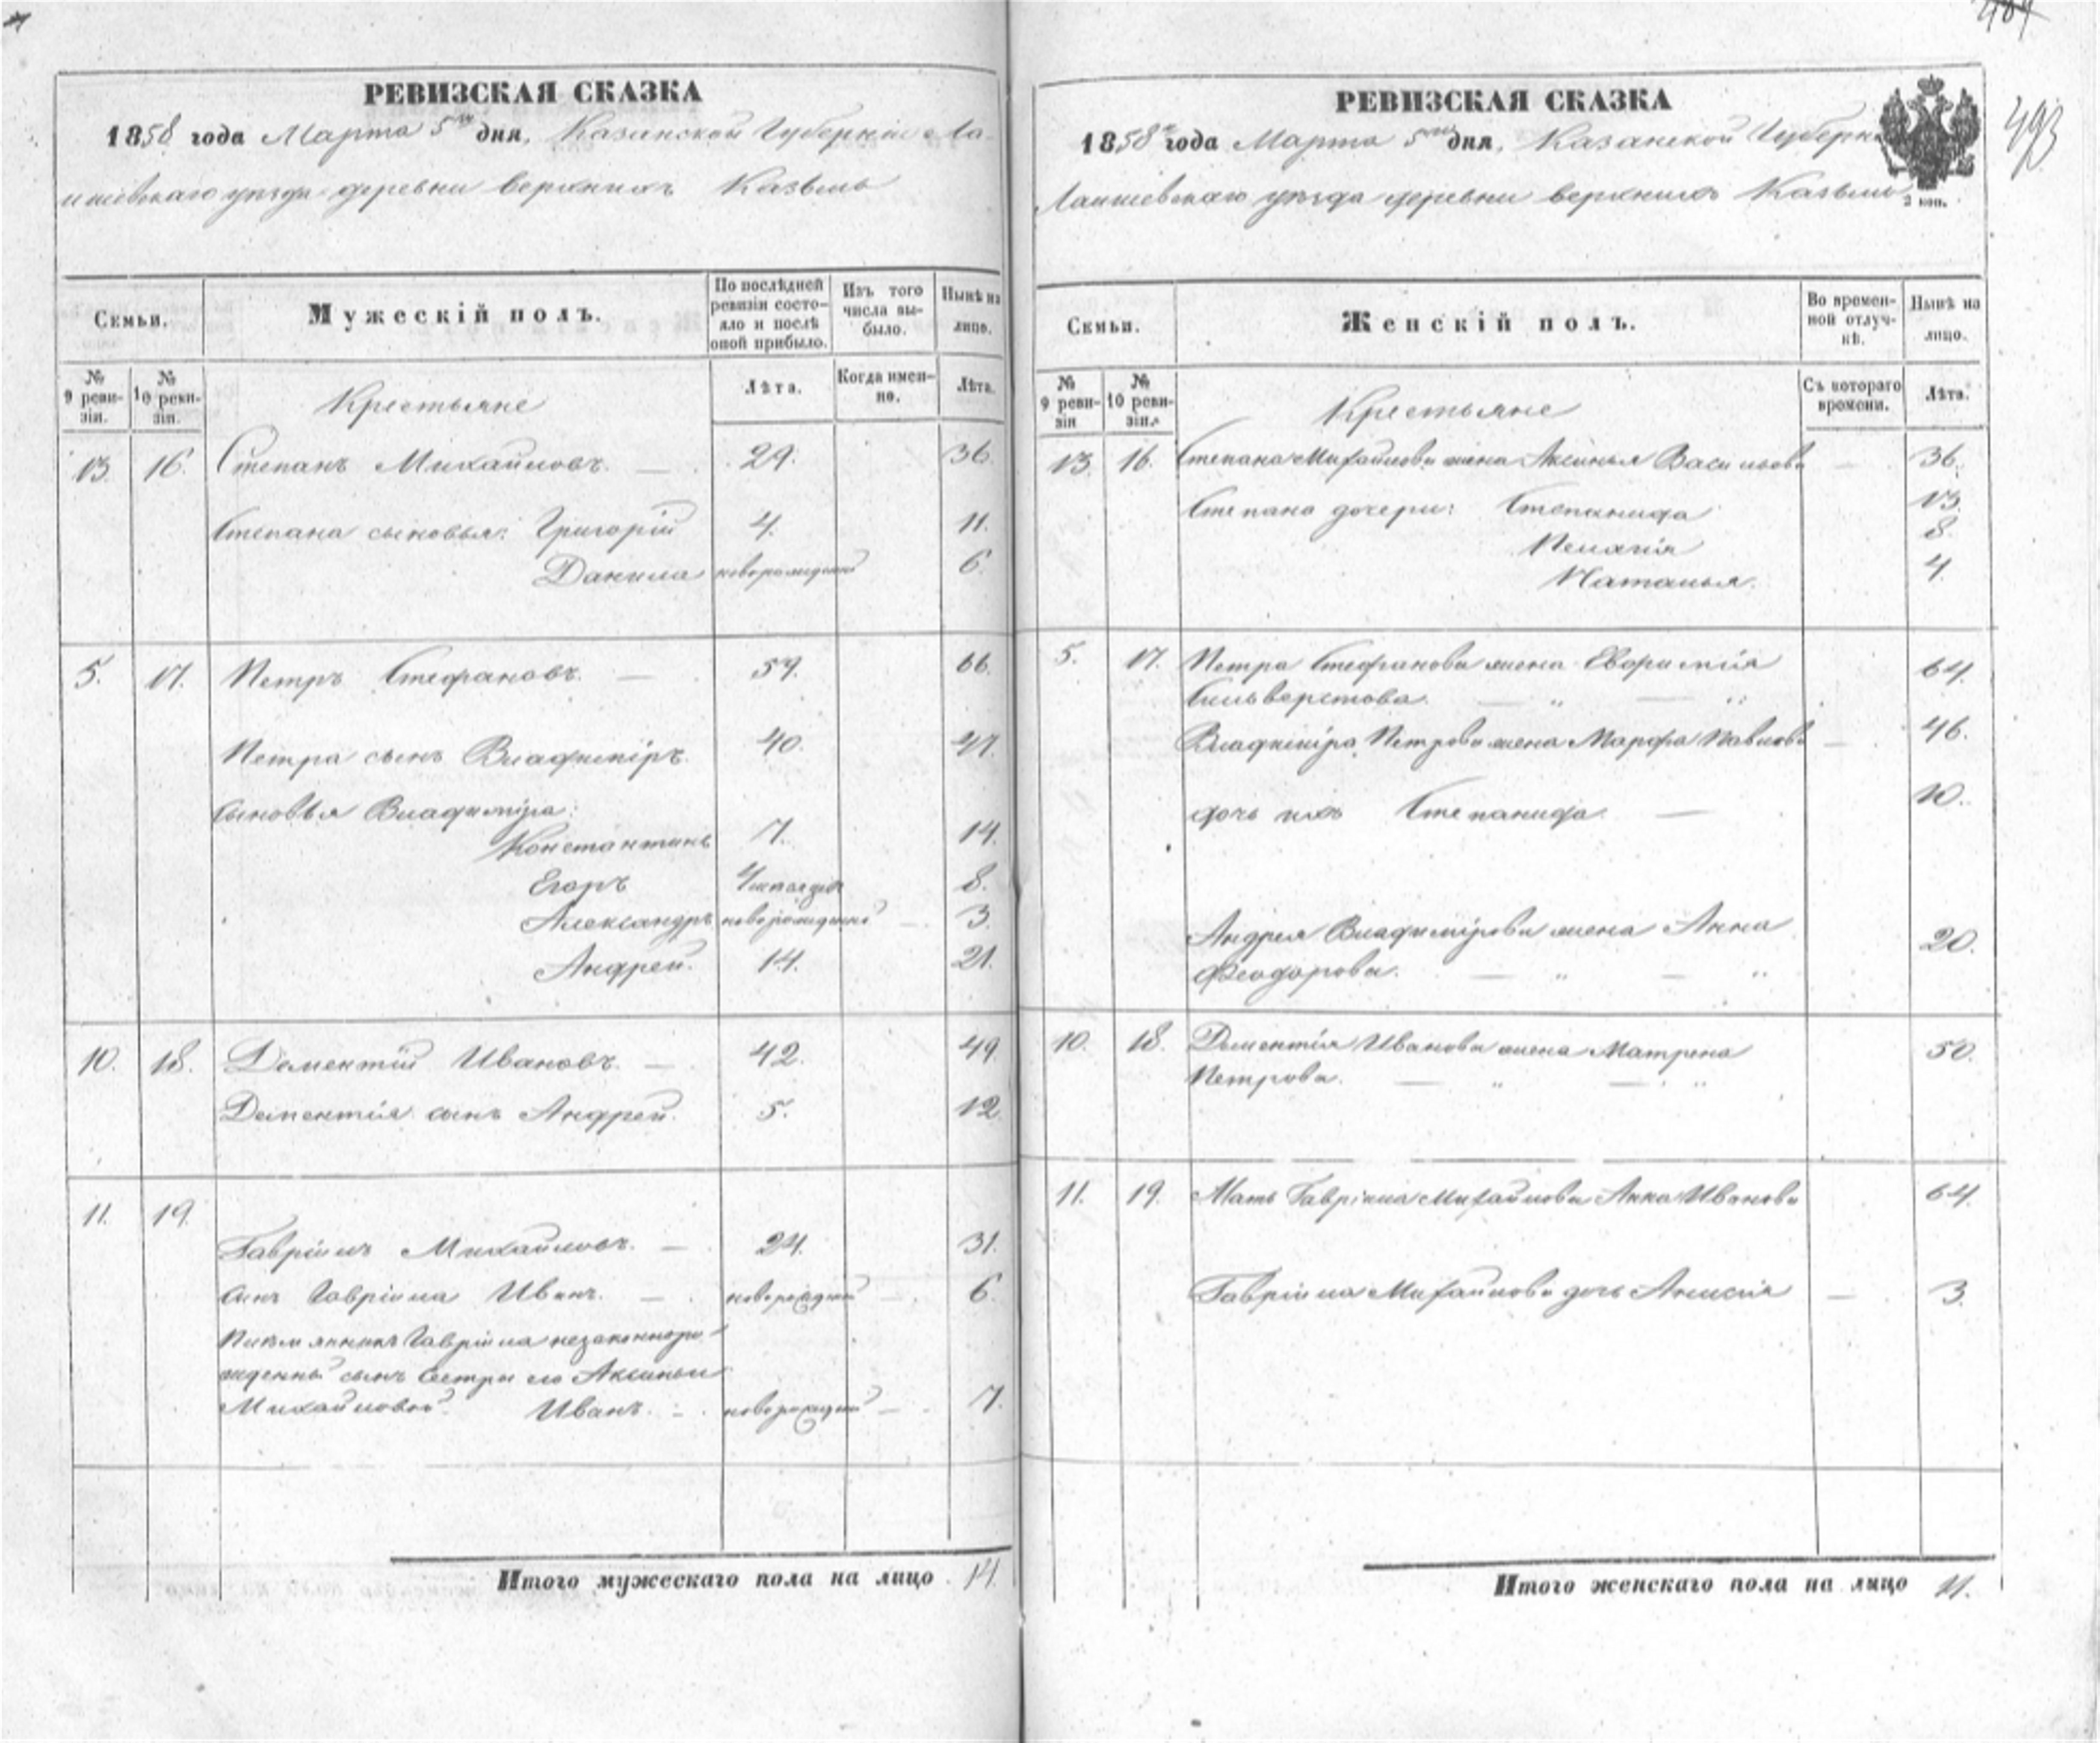 РЕВИЗСКАЯ СКАЗКА
1858 года Марта 5го дня, Казанской Губерніи Ла-
ишевскаго уѣзда деревни верхнихъ Казыль
Семьи.
Мужескій полъ.
По послѣдней ревизіи состо-яло и послѣ оной прибыло.
Изъ того числа вы-было.
Нынѣ на лицо.
№ 9 реви-зіи.
№ 10 реви-зіи.
Крестьяне
Лѣта.
Когда имен-но.
Лѣта.
13. 16. Степанъ Михайловъ. — 29. 36.
Степана сыновья: Григорій 4. 11.
Данила новорожденный 6.
5. 17. Петръ Стефановъ. — 59. 66.
Петра сынъ Владиміръ. 40. 47.
Сыновья Владиміра:
Константинъ 7. 14.
Егоръ 8.
Александръ новорожденный — 3.
Андрей. 14. 21.
10. 18. Дементій Ивановъ. — 42. 49.
Дементія сынъ Андрей. 5. 12.
11. 19.
Гавріилъ Михайловъ. — 24. 31.
сынъ Гавріила Иванъ. — новорожденный — 6.
Племянникъ Гавріила незаконноро-
жденный сынъ сестры его Аксиньи
Михайловой Иванъ. — новорожденный — 7.
Итого мужескаго пола на лицо 14.
493
РЕВИЗСКАЯ СКАЗКА
1858го года Марта 5го дня, Казанской Губерніи
Лаишевскаго уѣзда деревни верхнихъ Казыль
2 коп.
Семьи.
Женскій полъ.
Во времен-ной отлуч-кѣ.
Нынѣ на лицо.
№ 9 реви-зіи
№ 10 реви-зіи.
Крестьяне
Съ котораго времени.
Лѣта.
13. 16. Степана Михайлова жена Аксинья Васильева — 36.
Степана дочери: Степанида 13.
Пелагія 8.
Наталья. 4.
5. 17. Петра Стефанова жена Евфимія 64.
Сильверстова. — „ — „
Владиміра Петрова жена Марфа Павлова — 46.
дочь ихъ Степанида — 10.
Андрея Владимірова жена Анна 20.
Феодорова. — „ — „
10. 18. Дементія Иванова жена Матрена 50.
Петрова. — „ — „
11. 19. Мать Гавріила Михайлова Анна Иванова 64.
Гавріила Михайлова дочь — 3.
Итого женскаго пола на лицо 11.